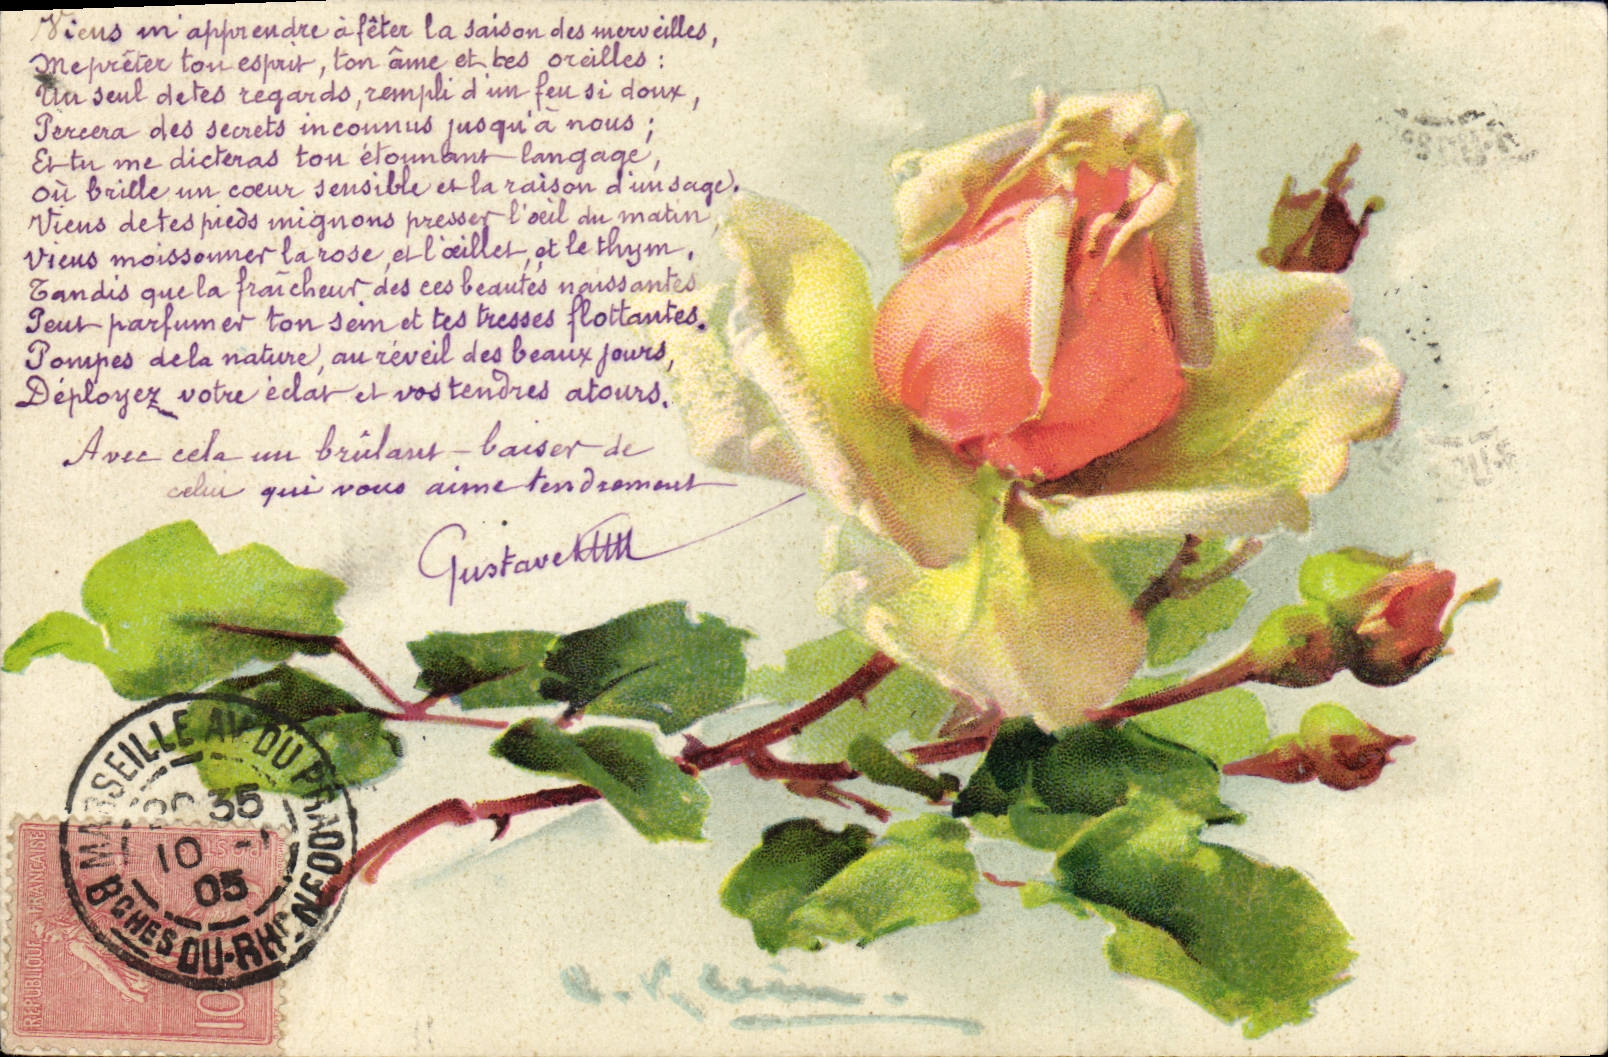 Viens m'apprendre à fêter la saison des merveilles,
Me prêter ton esprit, ton âme et tes oreilles :
Un seul de tes regards, rempli d'un feu si doux,
Percera des secrets inconnus jusqu'à nous ;
Et tu me dicteras ton étonnant langage,
Où brille un cœur sensible et la raison d'un sage.
Viens de tes pieds mignons presser l'œil du matin,
Viens moissonner la rose, et l'œillet, et le thym.
Tandis que la fraîcheur des ces beautés naissantes
Peut parfumer ton sein et tes tresses flottantes.
Pompes de la nature, au réveil des beaux jours,
Déployez votre éclat et vos tendres atours.
Avec cela un brûlant baiser de
celui qui vous aime tendrement
Gustave
MARSEILLE AV. DU PRADO
35
10
05
BCHES DU-RHNE
REPUBLIQUE FRANÇAISE
POSTES
10
C. Klein.